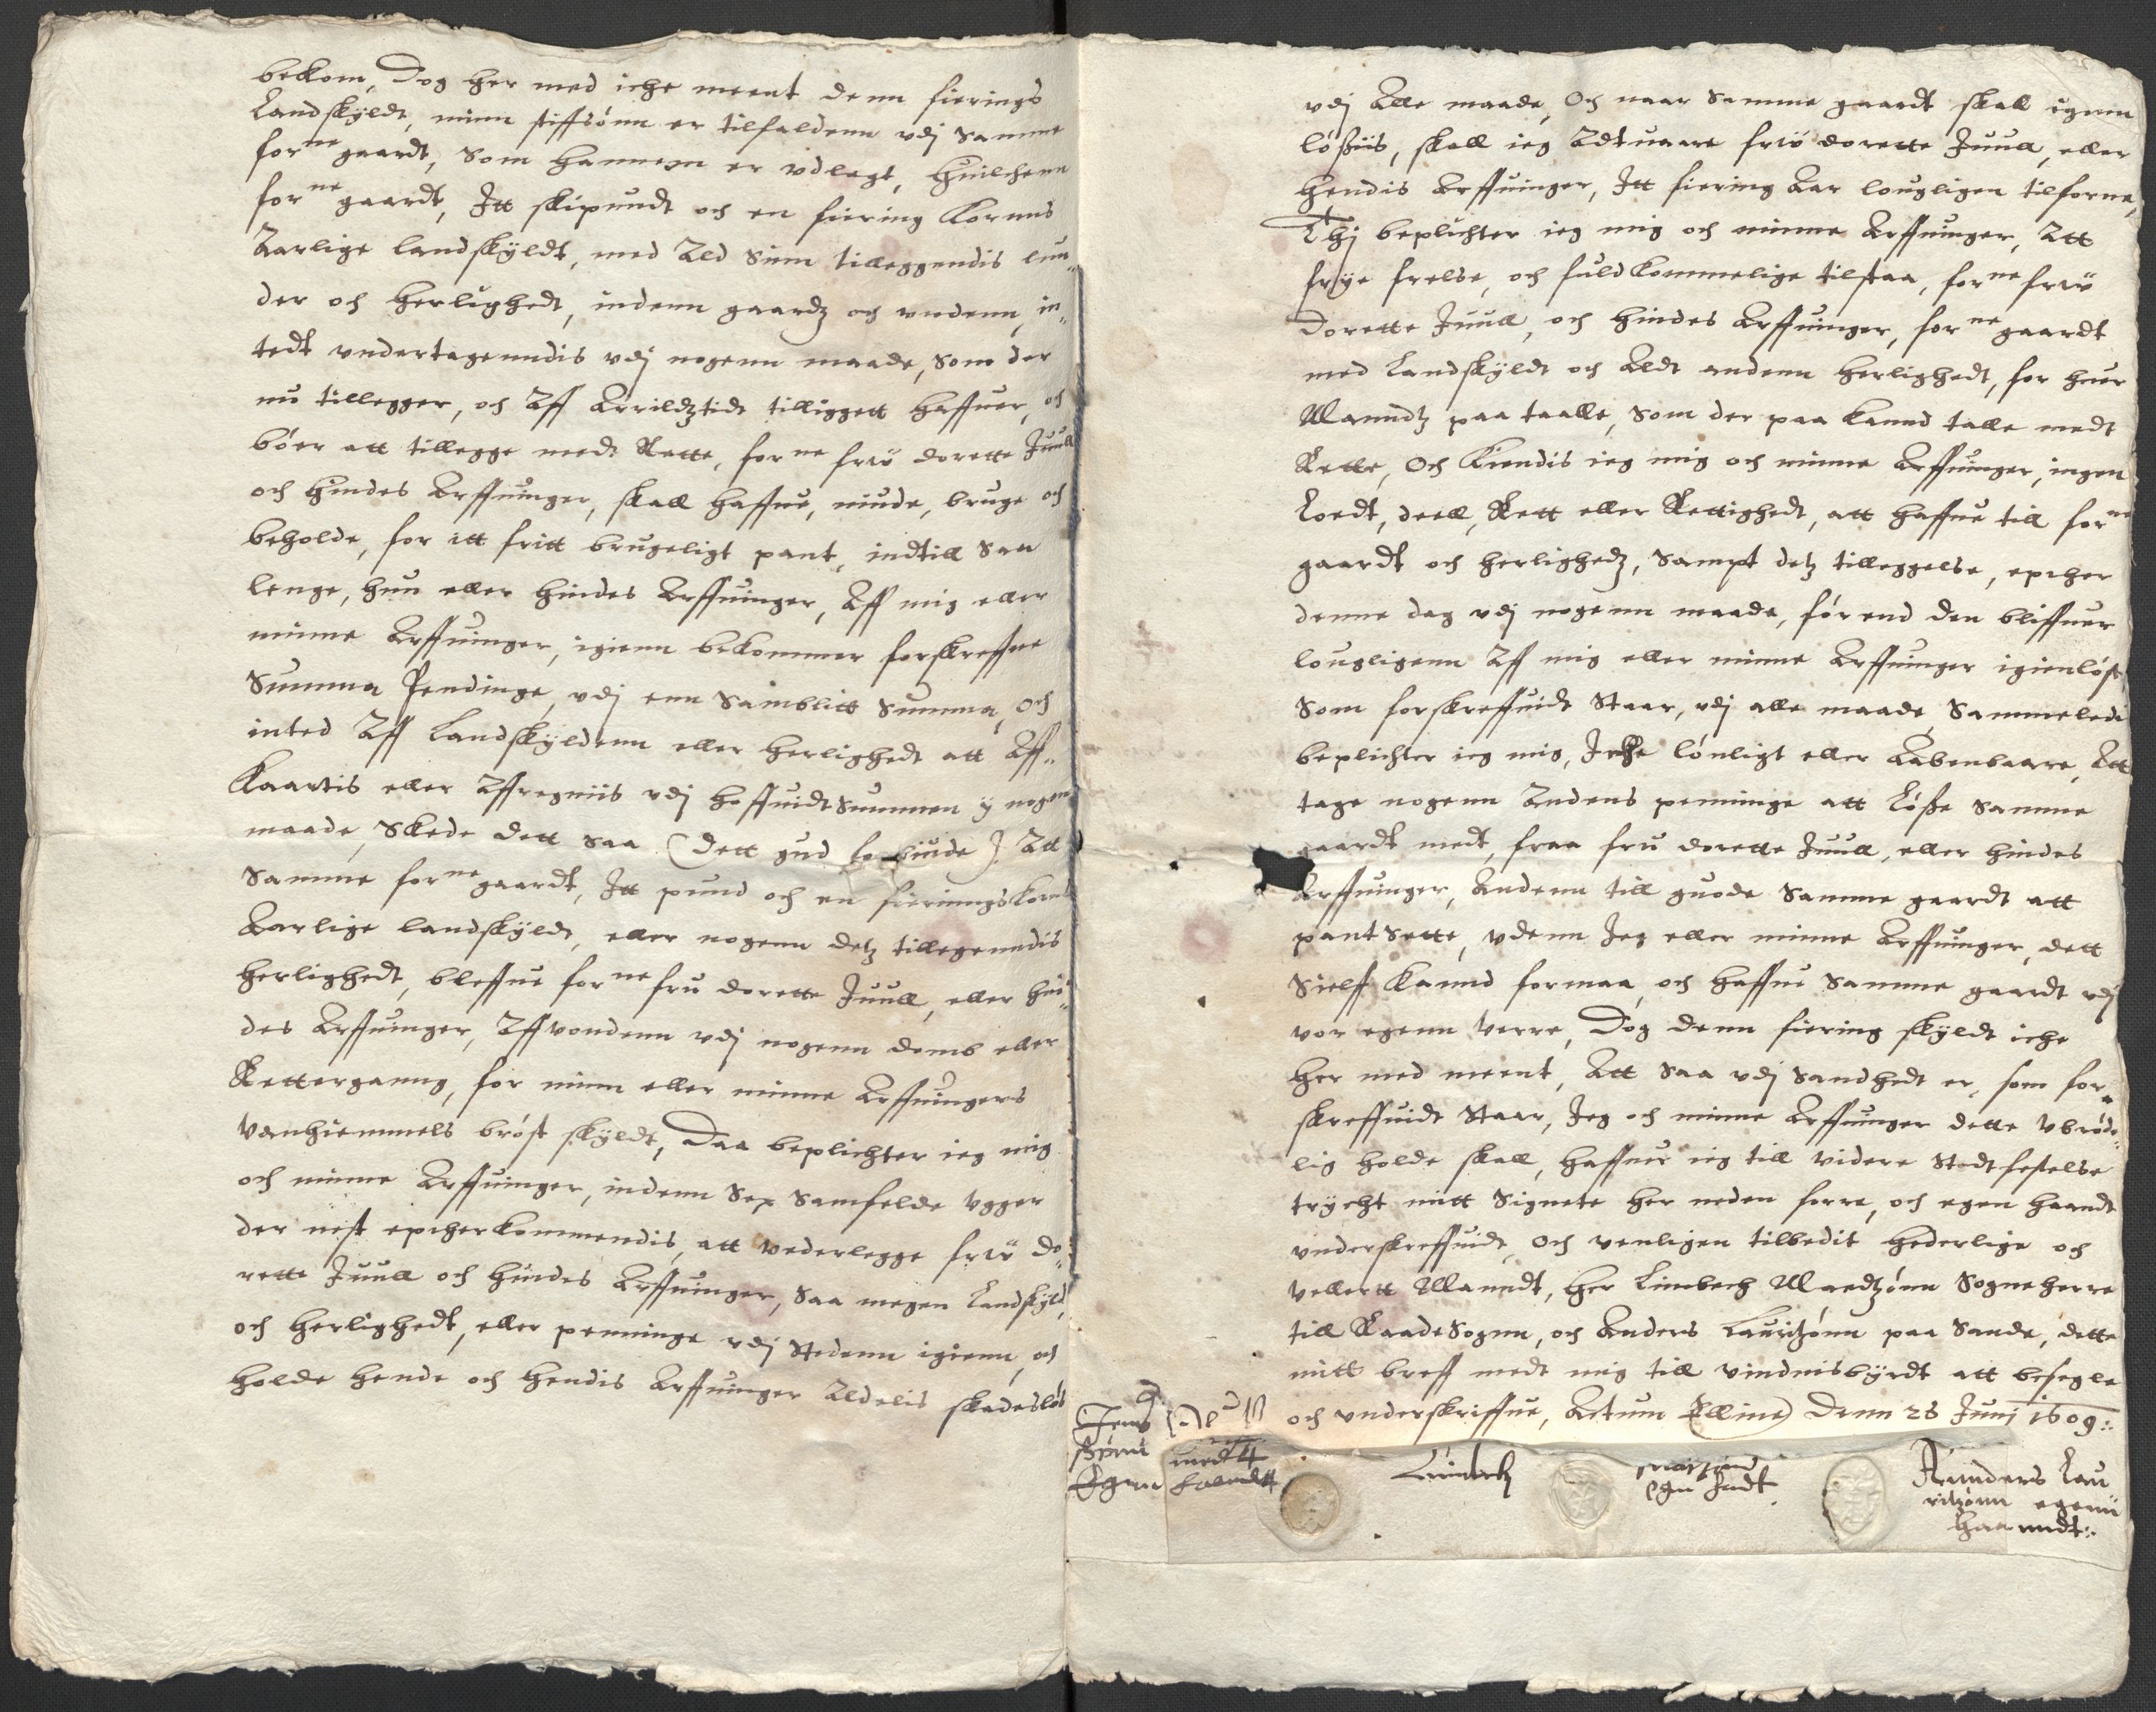 bekom, Dog her med iche meent denn fierings
Landskÿldt, minn stiffsønn er tilfaldenn vdj samme
forne gaardt, som hannem er vdlegt, Huilchenn
forne gaardt, Itt skipundt och en fiering Kornns
Aarlige landskÿldt, med Ald sinn tilleggendis lun„
der och herlighedt, indenn gaardz och vndenn, in„
tedt vndertagenndis vdj nogenn maade, som der
nu tillegger, och Aff Arrildztidt tilliggett haffuer, och
bøer att tillegge medt Rette, forne frw dorette Juull
och hindes Arffuinger, skall haffue, niude, bruge och
beholde, for itt fritt brugeligt pant, indtill saa
lenge, hun eller hindes Arffuinger, Aff mig eller
minne Arffuinger, igienn bekommer forskreffne
Summa Pendinge, vdj enn samblitt Summa, och
inted Aff Landskÿldenn eller herlighedt att Aff„
Kaartis eller Affregniis vdj hoffuidtSummen ÿ nogen
maade, Skede dett saa (dett gud forbiude) Att
samme forne gaardt, Itt pund och en fierinngskornns
Aarlige landskÿldt, eller nogenn detz tillegenndis
herlighedt, bleffue forne fru dorette Juull, eller hin„
des Arffuinger, Affvondenn vdj nogenn domb eller
Retterganng, for minn eller minne Arffuingers
vanhiemmels brøst skÿldt, Daa beplichter ieg mig
och minne Arffuinger, indenn Sex Samfelde vgger
der nest epther kommendis, att vederlegge frw do„
rette Juull och hindes Arffuinger, saa megen Landskÿld,
och herlighedt, eller penninge vdj stedenn igienn, och
holde hende och hendis Arffuinger Aldelis skadesløs
vdj Alle maade, Och naar samme gaardt skall igenn
løssiis, skall ieg Aduare frw dorette Juull, eller
hendis Arffuinger, Itt fiering Aar lougligen tilforne,
Thj beplichter ieg mig och minne Arffuinger, Att
frÿe frelse, och fuldkommelige tilstaa, forne frw
Dorette Juull, och hindes Arffuinger, forne gaardt
med Landskÿldt och Aldt andenn herlighedt, for huer
Manndz paa taalle, som der paa kannd talle medt
Rette, Och Kiendis ieg mig och minne Arffuinger, ingen
Loedt, deell, Rett eller Rettighedt, att haffue till forne
gaardt och herlighedz, sampt detz tilleggelse, epther
denne dag vdj nogenn maade, før end den bliffuer
lougligenn Aff mig eller minne Arffuinger igienløst
Som forskreffuidt Staar, vdj alle maade, Sammeledis
beplichter ieg mig, Icke lønligt eller Aabenbaare, Att
tage nogenn Andens penninge att løsse samme
gaardt medt, fraa fru dorette Juull, eller hindes
Arffuinger, Andenn till guode samme gaardt att
pantsette, vdenn Jeg eller minne Arffuinger, dett
Sielff kannd formaa, och haffue samme gaardt vdj
vor egenn verre, Dog denn fiering skÿldt iche
her med meent, Att saa vdj sandhedt er, som for„
skreffuidt Staar, Jeg och minne Arffuinger dette vbrøde„
lig holde skall, haffuer ieg till videre Stedtfestelse
trÿcht mitt Signete her neden forre, och egen haandt
vnderskreffuidt, Och venligen tilbedit hederlige och
vellertt Manndt, her Limbech Madtzønn Sogneherre
till RaadeSogenn, och Anders Lauritzønn paa Sande, dette
mitt breff medt mig till vindnisbÿrdt att besegle
och vnderskriffue, Actum Elline Denn 28 Junj 1609:.
Jens
med
Egen haandtt
Limbech
Egn handt
Annders Lau
ritzønn egenn
haanndt:.